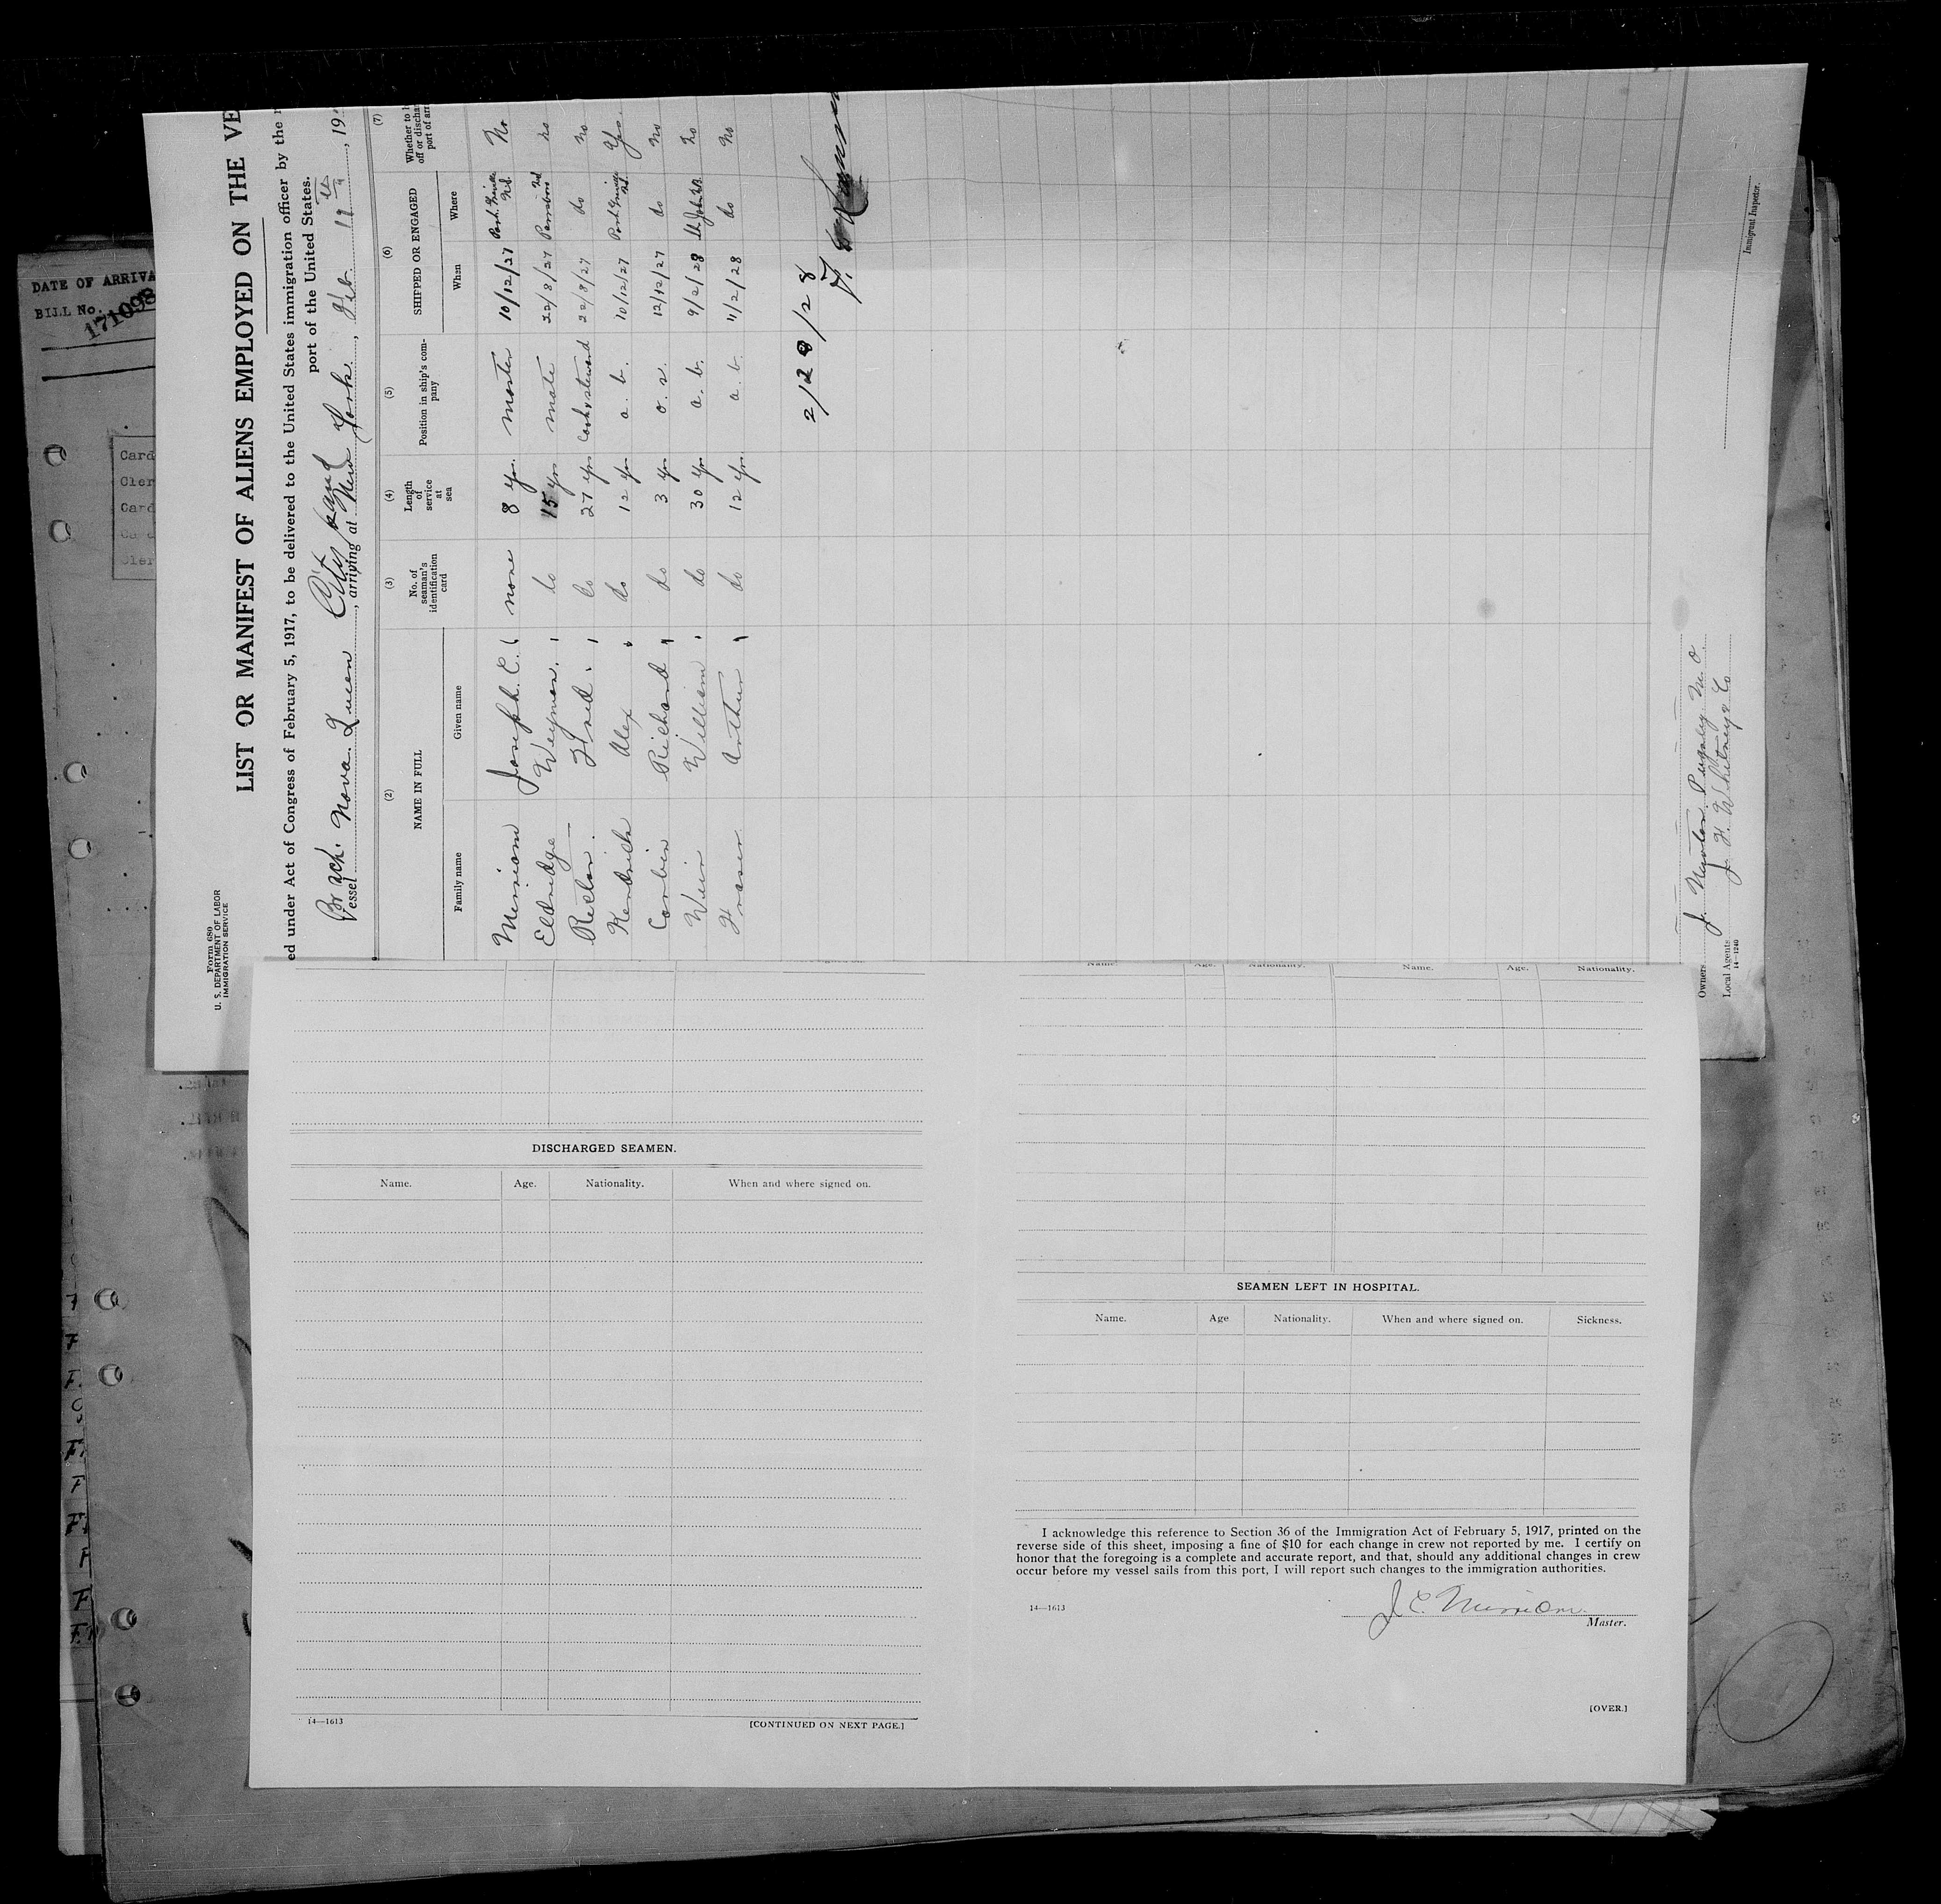 DATE OF ARRIVA
BILL No. 171098
Card
Cler
Card
Card
Cler
Form 680
U. S. DEPARTMENT OF LABOR
IMMIGRATION SERVICE
LIST OR MANIFEST OF ALIENS EMPLOYED ON THE VE
ed under Act of Congress of February 5, 1917, to be delivered to the United States immigration officer by the
port of the United States.
Vessel Nova Queen, arriving at New York, Feb. 19th, 19
(2) (3) (4) (5) (6) (7)
NAME IN FULL No. of seaman's identification card Length of service at sea Position in ship's company SHIPPED OR ENGAGED Whether to off or discha port of arr
Family name Given name When Where
Merriam Joseph C. none 8 yrs. master 10/12/27 Port Greville N.S. No
Eldridge do 15 yrs mate 22/8/27 Parrsboro N.S. no
Fred do 27 yrs cook & steward 22/8/27 do no
Kendrick Alex do 12 yrs a. b. 10/12/27 Port Greville N.S. Yes.
Corbin Richard do 3 yrs o. s. 12/12/27 do no
Weir William do 30 yrs a. b. 9/2/28 St John N.B. no
Fraser Arthur do 12 yrs a. b. 11/2/28 do no
Immigrant Inspector.
Owners J. Newton Pugsley M. O.
Local Agents J. F. Whitney & Co
14—1240
DISCHARGED SEAMEN.
Name. Age. Nationality. When and where signed on.
14—1613
[CONTINUED ON NEXT PAGE.]
Name. Age. Nationality. Name. Age. Nationality.
SEAMEN LEFT IN HOSPITAL.
Name. Age Nationality. When and where signed on. Sickness.
I acknowledge this reference to Section 36 of the Immigration Act of February 5, 1917, printed on the
reverse side of this sheet, imposing a fine of $10 for each change in crew not reported by me. I certify on
honor that the foregoing is a complete and accurate report, and that, should any additional changes in crew
occur before my vessel sails from this port, I will report such changes to the immigration authorities.
14—1613
J. C. Merriam
Master.
[OVER.]